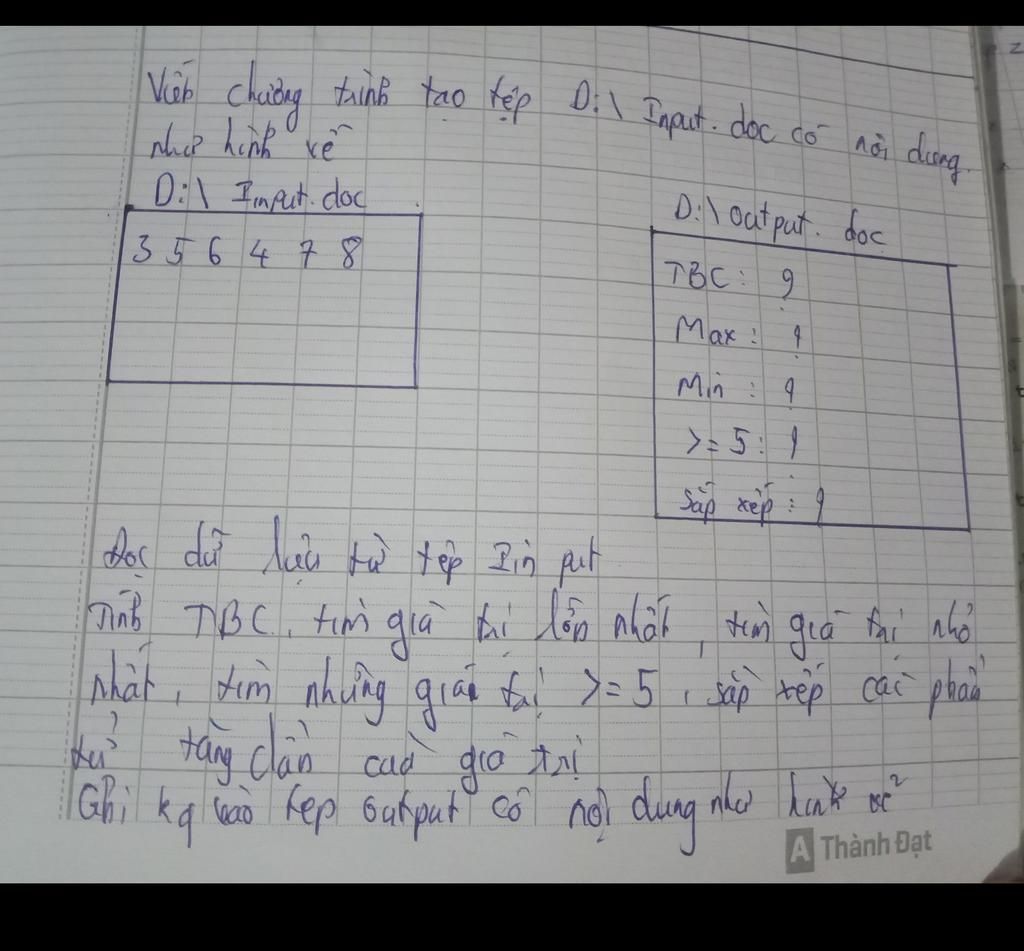 Viết chương trình tạo tệp D:\ Input.doc có nội dung
như hình vẽ
D:\ Input.doc
3 5 6 4 7 8
D:\ output.doc
TBC: ?
Max: ?
Min: ?
>= 5: ?
sắp xếp: ?
Đọc dữ liệu từ tệp Input
Tính TBC, tìm giá trị lớn nhất, tìm giá trị nhỏ
nhất, tìm những giá trị >= 5, sắp xếp các phần
tử tăng dần của giá trị
Ghi kq vào tệp output có nội dung như hình vẽ
A Thành Đạt